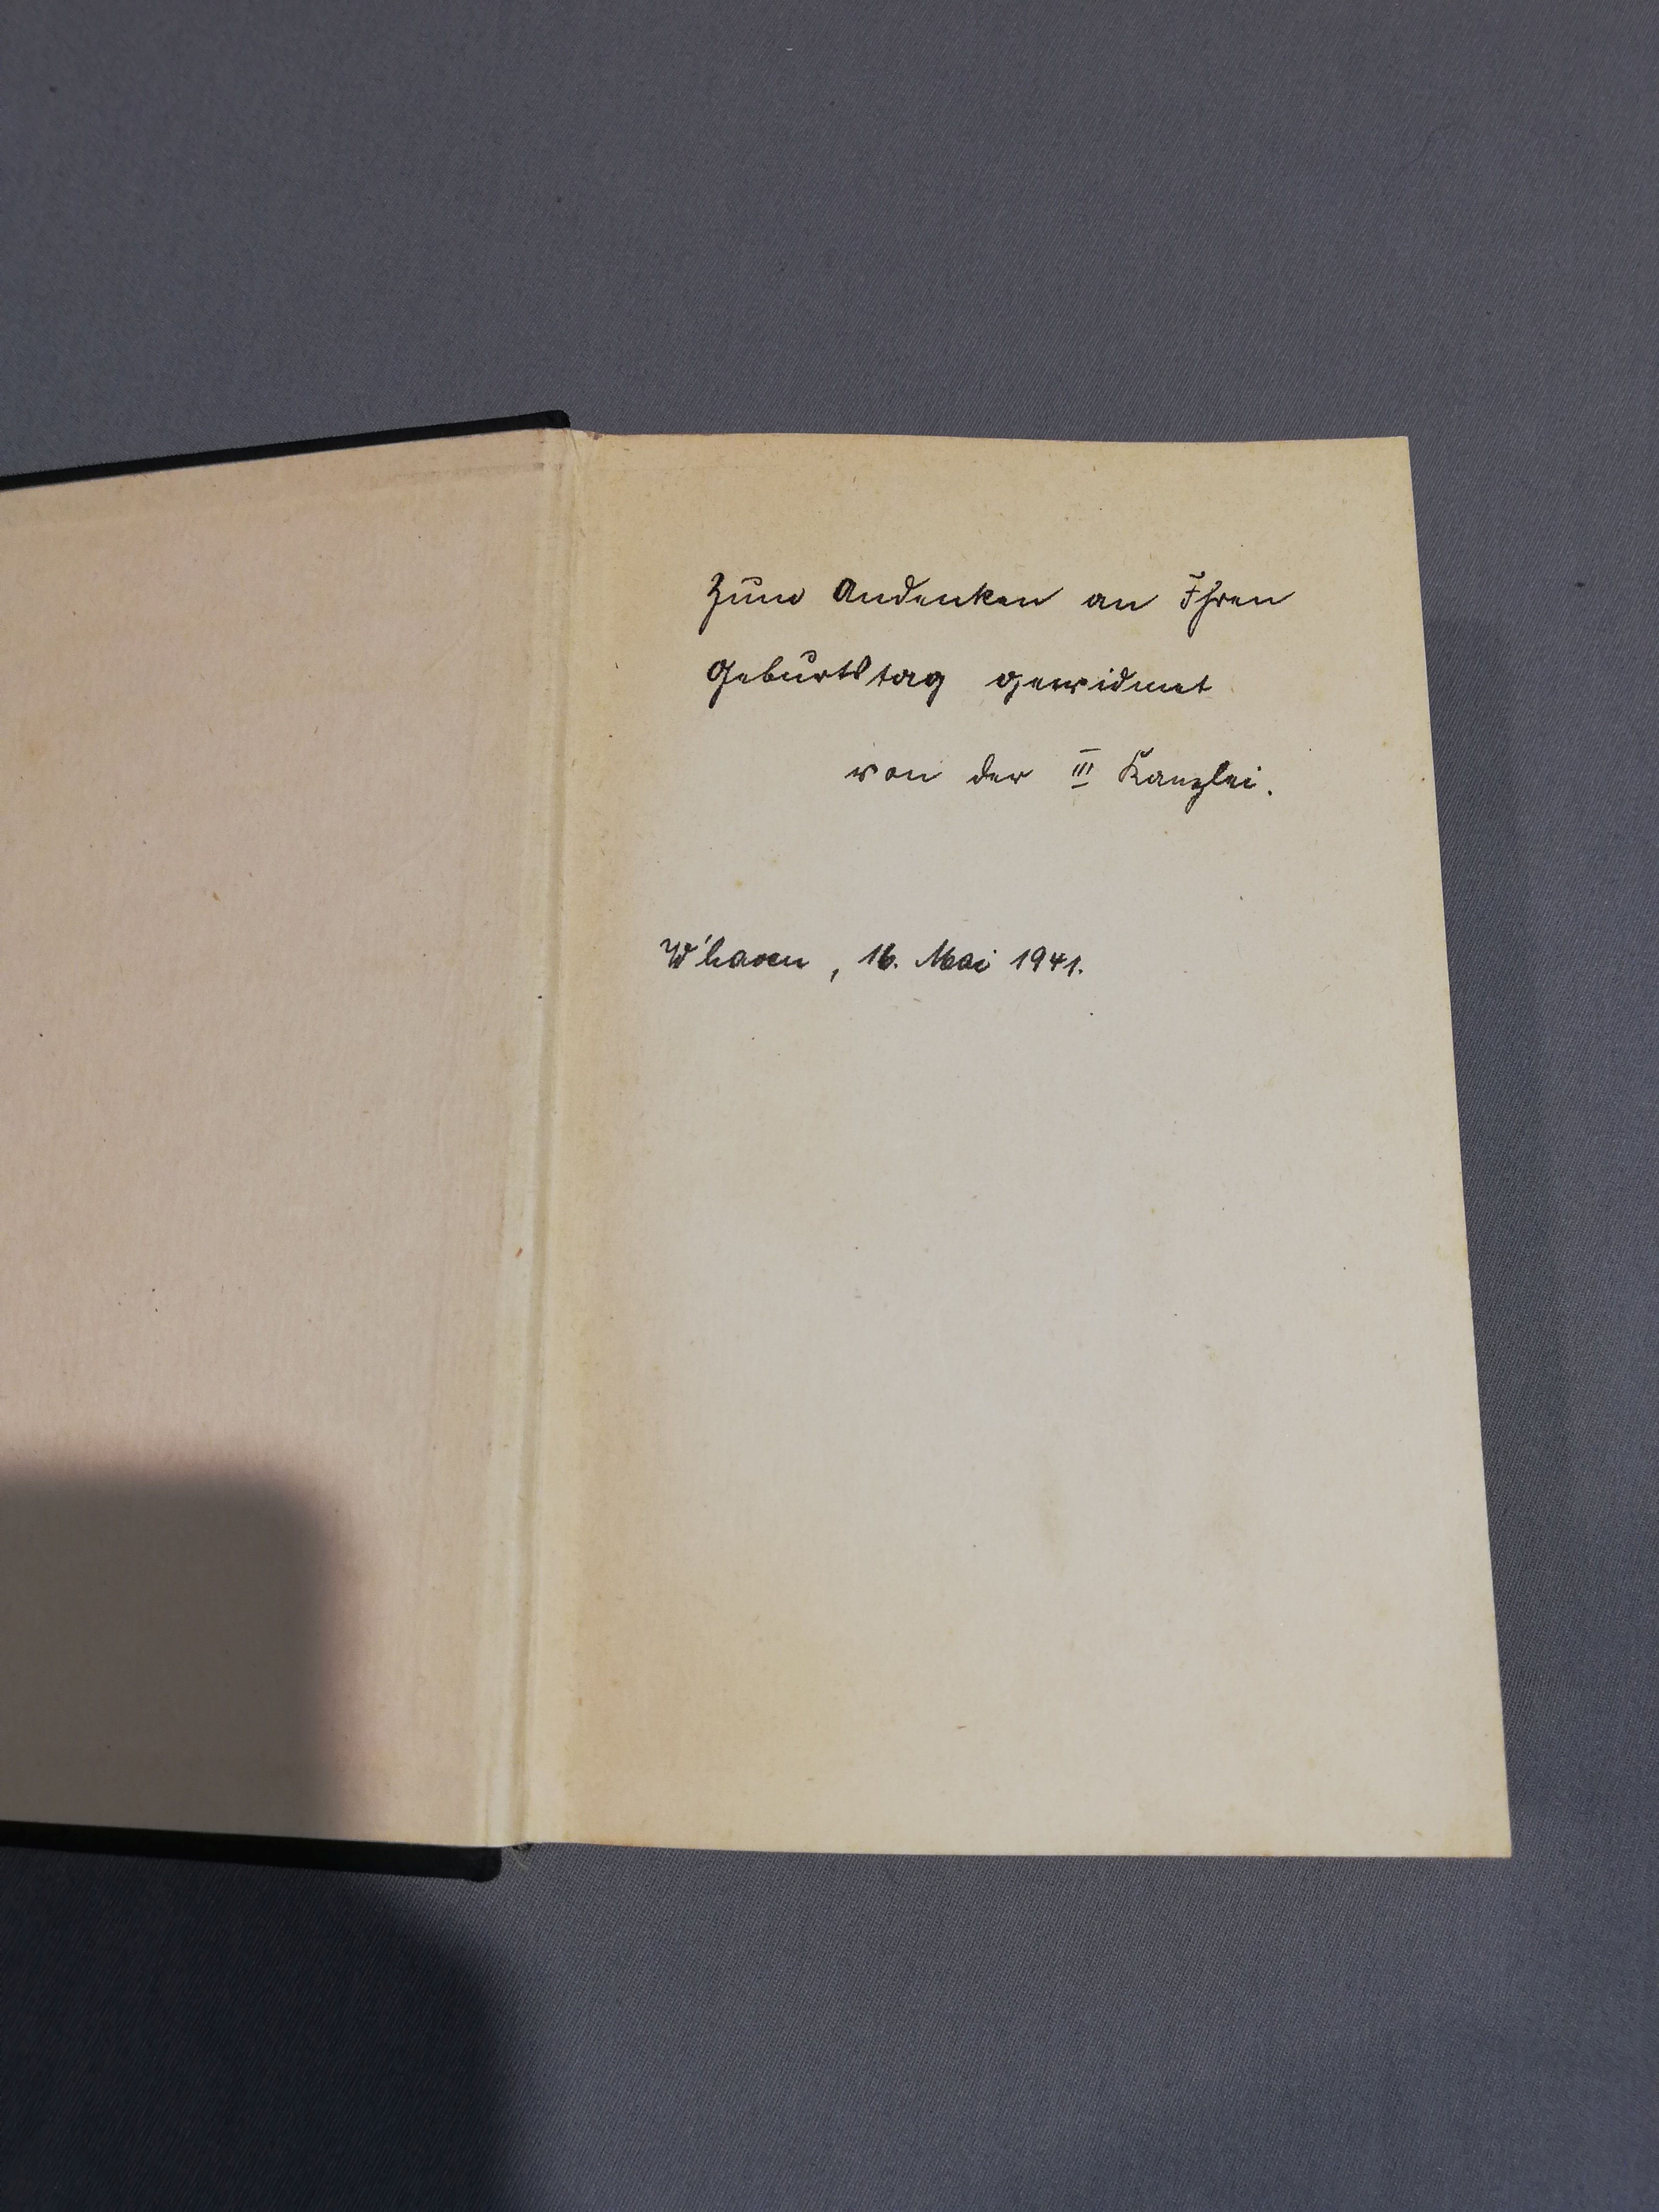 Zum Andenken an Ihren
Geburtstag gewidmet
von der III Kanzlei.
W'haven, 16. Mai 1941.